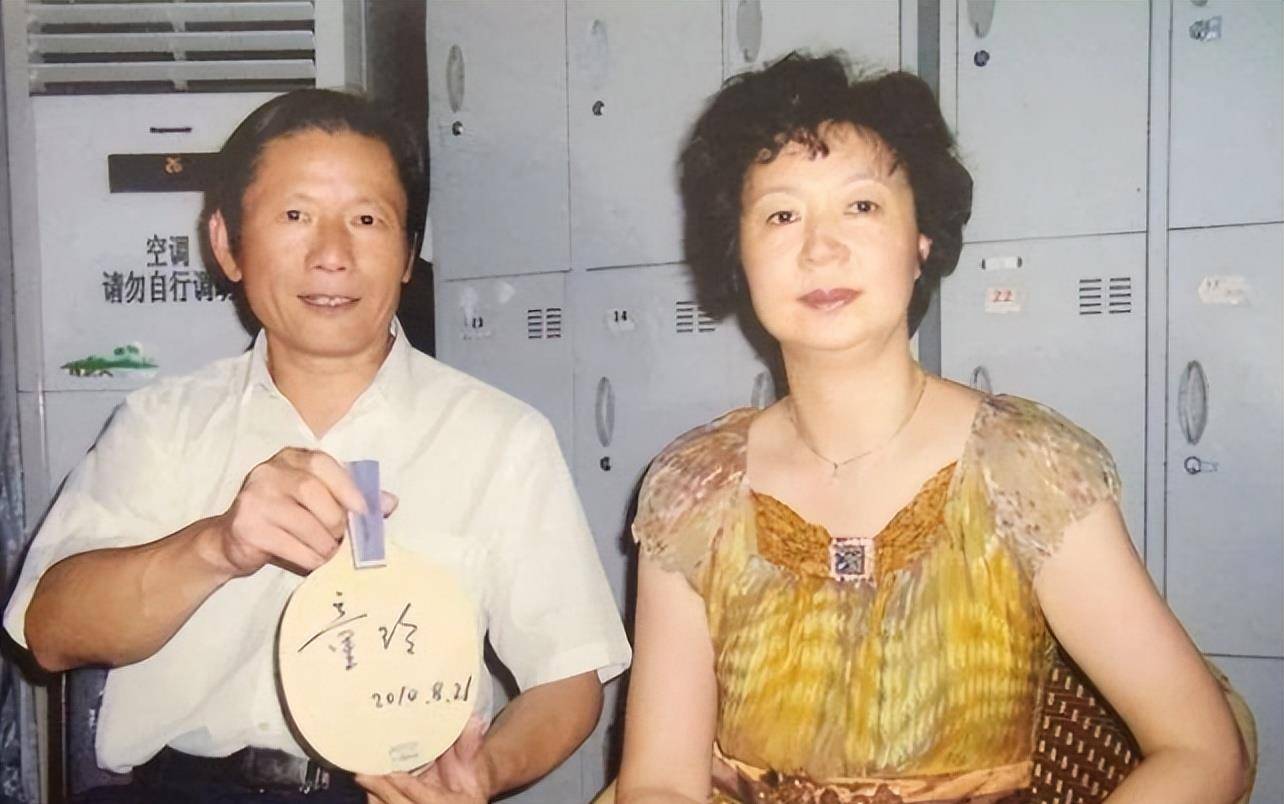 空调
请勿自行调
14
22
童玲
2010.8.21